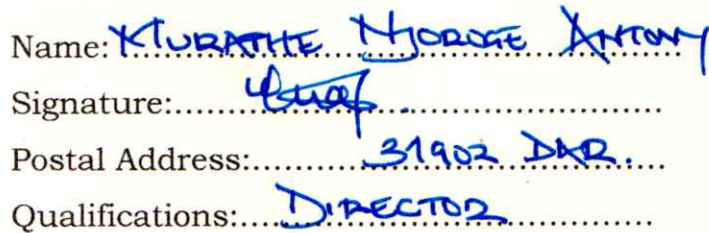 Name: MURATHE NJOROGE ANTONY
Signature:
Postal Address: 31902 DAR.
Qualifications: DIRECTOR